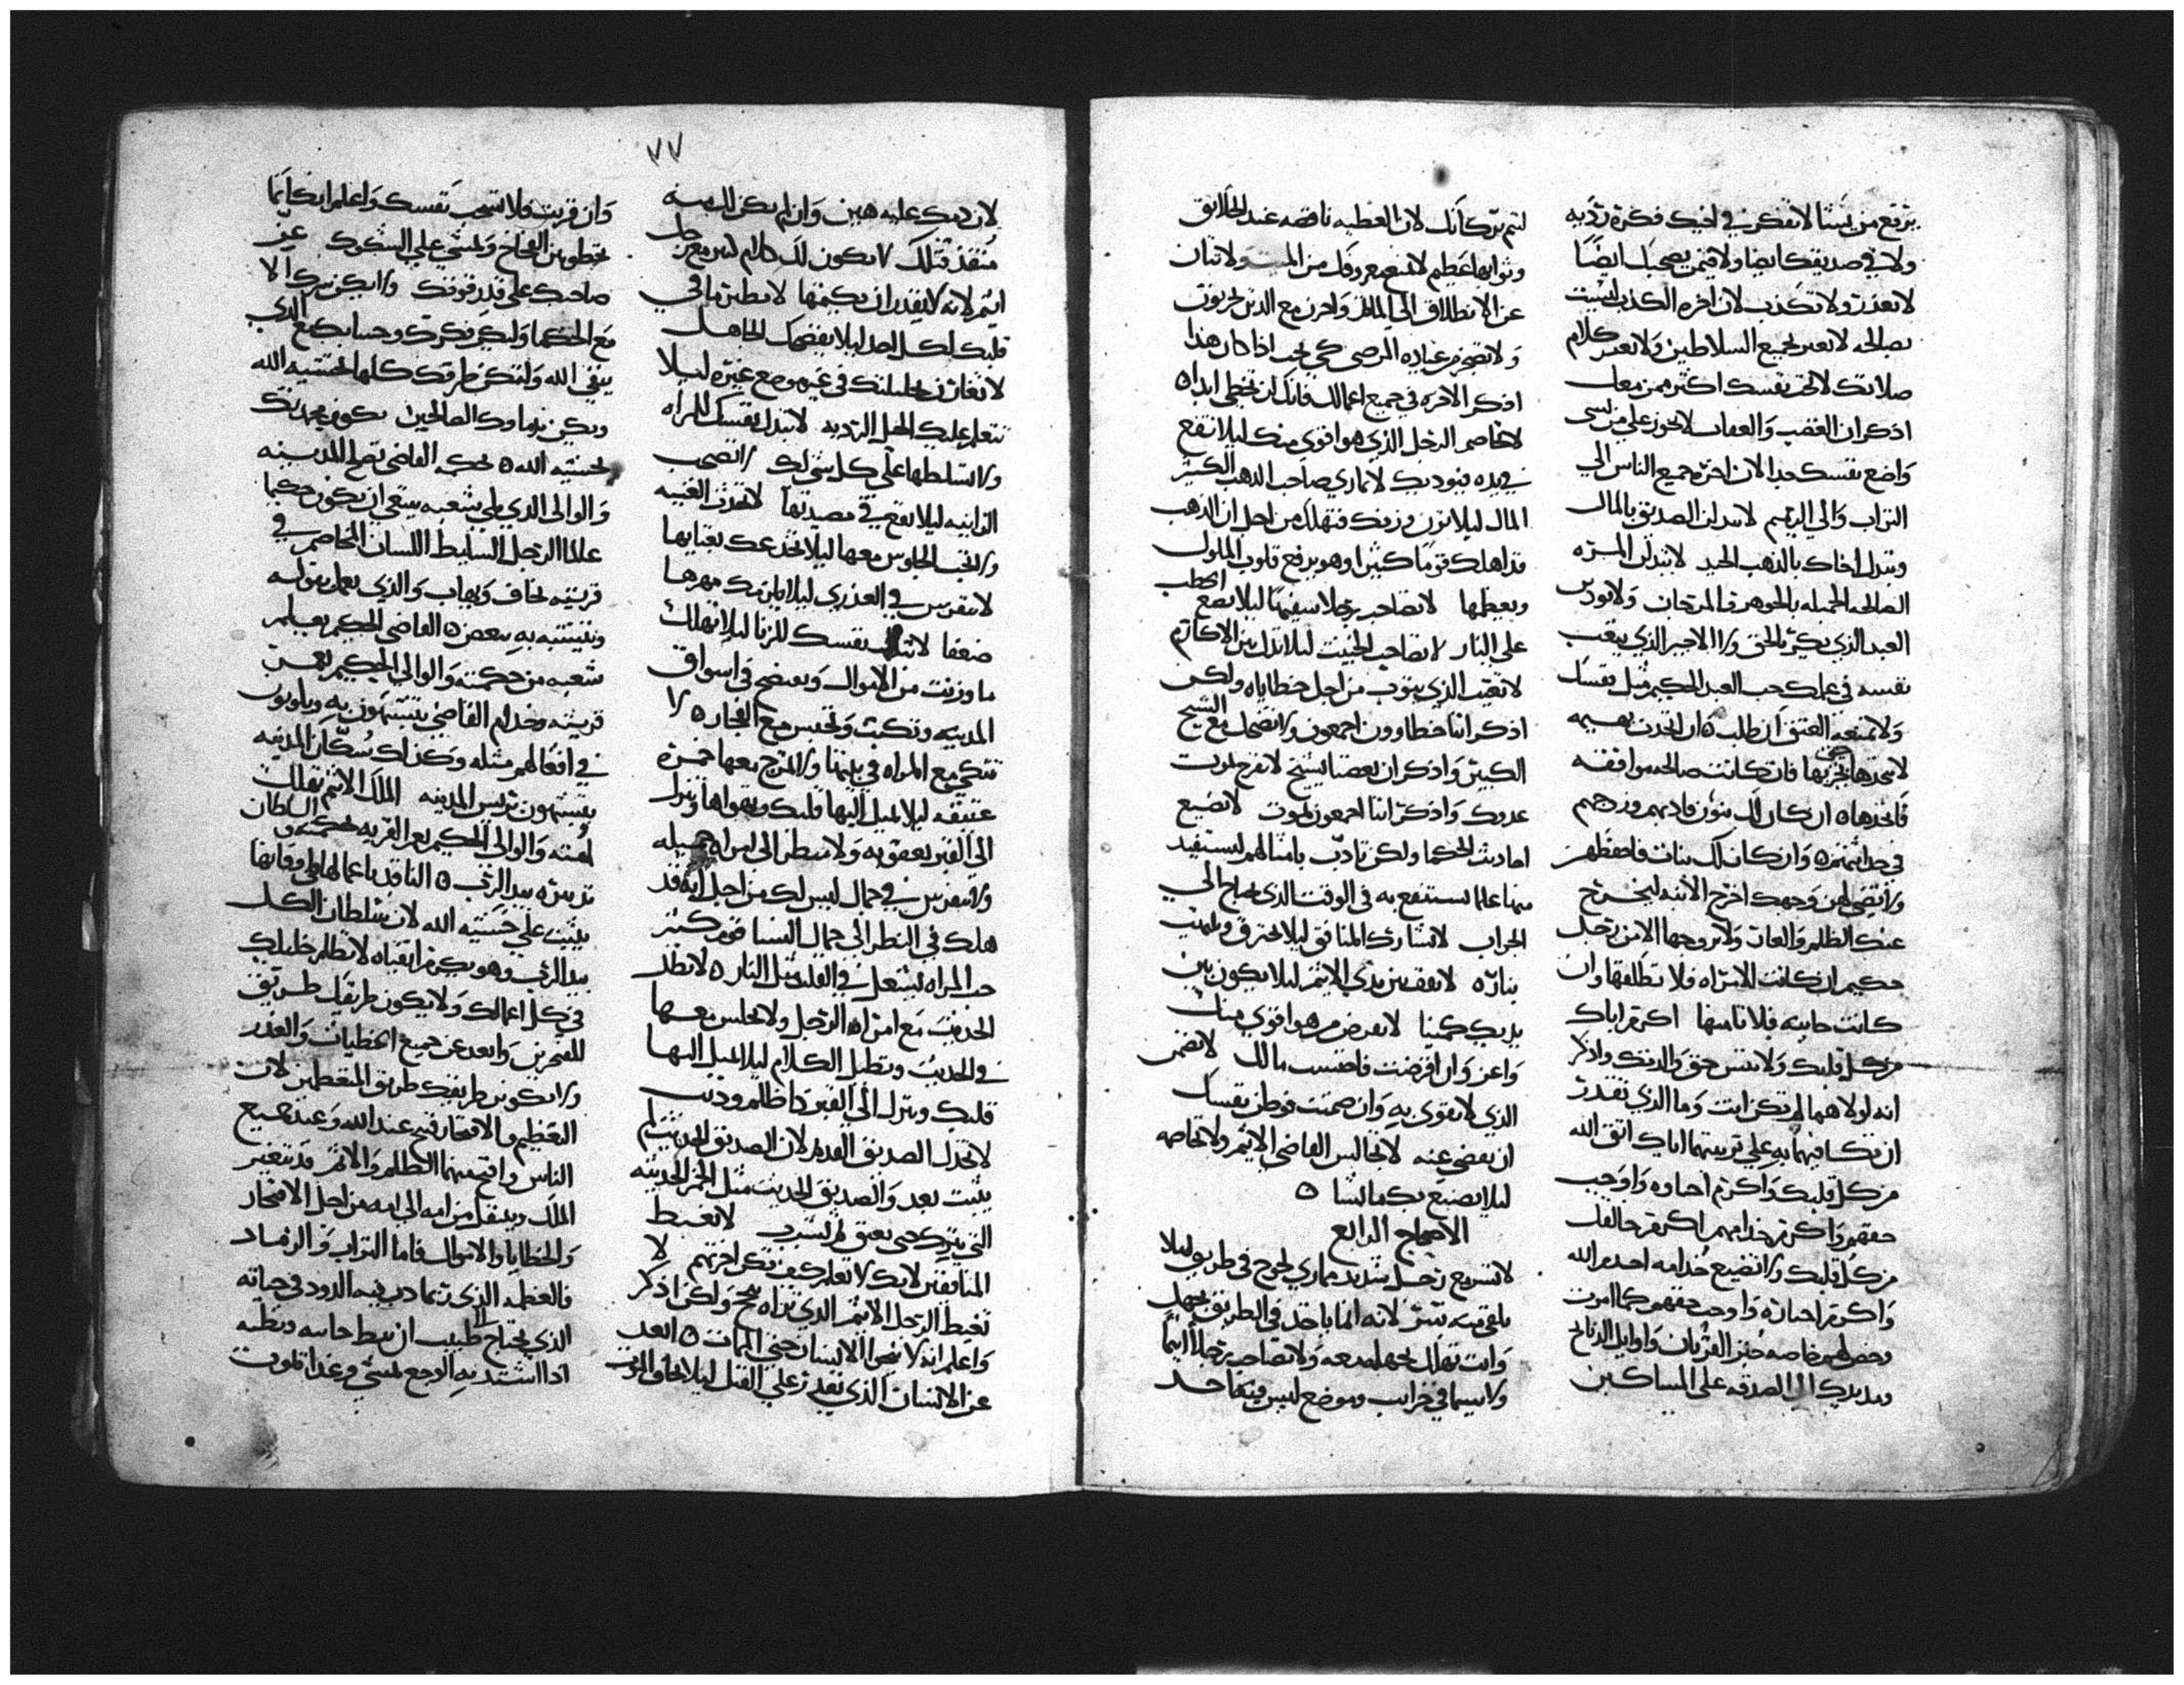 يرتفع من يشا لا تفكر في اخيك فكره رديه
ولا في صديقك ايضا ولا فيمن يصحبك ايضا
لا تعذر ولا تكذب لان اخره الكذب ليست
بصالحه لا تعير بجميع السلاطين ولا تغير كلام
صلاتك لا تحب نفسك اكثر ممن معك
اذكر ان الغضب والعقاب لا تجوز علي من نسي
واضع نفسك جدا لان اخره جميع الناس الي
التراب والي الرميم لا تبدلن الصديق بالمال
وتبدل اخاك بالذهب الجيد لا تبدلن المره
الصالحه الجميله بالجوهر والمرجان ولا توذين
العبد الذي يكرم بالحق ولا الاجير الذي يتعب
نفسه في عملك حب العبد الحكيم مثل نفسك
ولا تمنعه العتق ان طلب ان اتخذت بهيمه
لا تتخذها حتي تجربها فان كانت صالحه موافقه
فاتخذها ان كان لك بنون فادبهم وزوجهم
في حداثتهم وان كان لك بنات فاحفظهن
ولا تضي لهن وجهك اخرج الابنه ليخرج
عنك الظلم والعار ولا تزوجها الا من رجل
حكيم ان كانت لك امراه فلا تطلقها وان
كانت خاينه فلا تامنها اكرم اباك
من كل قلبك ولا تنس حق والدتك واذكر
انه لولاهما لم تكن انت وما الذي تقدر
ان تكافيهما به علي تربيتهما اياك اتق الله
من كل قلبك واكرم احباوه واوجب
حقهم واكرم خدامهم اكرم خالقك
من كل قلبك ولا تضيع خدامه احمد الله
واكرم احباره واوجب حقهم كما امرت
وخصهم خاصه خبز القربان واوايل الذبايح
ومد يدك الي الصدقه علي المساكين
لتتم بركاتك لان العطيه ناقصه عند الخلايق
وثوابها عظيم لا تمنع معروفك من الميت ولا تتان
عن الانطلاق الي الماتم واحزن مع الذين يحزنون
ولا تضجر من عياده المرضي كي تحب اذا كان هذا
اذكر الاخره في جميع اعمالك فانك لن تخطي ابدا
لا تخاصم الرجل الذي هو اقوي منك ليلا تقع
في يده فيوديك لا تماري صاحب الذهب الكثير
المال ليلا يزن وزنك فتهلك من اجل ان الذهب
قد اهلك قوما كثيرا وهو يرفع قلوب الملوك
ويعطها لا تصاحب رجلا سفيها ليلا تضع الحطب
علي النار لا تصاحب الخبيث ليلا تذل بين الاكارم
لا تعيب الذي يتوب من اجل خطاياه ولكن
اذكر اننا خطاوون اجمعون ولا تضحك مع الشيخ
الكبير واذكر ان بعضنا يشيخ لا تفرح لموت
عدوك واذكر اننا اجمعون نموت لا تضيع
احاديث الحكما ولكن تادب بامثالهم لتستفيد
منها علما تنتفع به في الوقت الذي تحتاج الي
الجواب لا تشارك المنافق ليلا تحترق وتلتهب
بناره لا تقف بين يدي الاثيم ليلا يكون بين
يديك كمينا لا تقرض من هو اقوي منك
واعز وان اقرضت فاحتسب مالك لا تضمن
الذي لا تقوي به وان ضمنت فوطن نفسك
ان تقضي عنه لا تجالس القاضي الاثيم ولا تخاصمه
ليلا يصنع بك ما يشا
الاصحاح الرابع
لا تسر مع رجل شديد مماري لجوج في طريق ليلا
يلقي بينه بشر لانه انما ياخذ في الطريق بجهل
وانت تهلك بجهله معه ولا تصاحب رجلا اثيما
ولا سيما في خراب وموضع ليس فيه احد
٧٧
لان دمك عليه هين وان لم يكن لك منه
منقذ قتلك لا يكون لك كلام السر مع رجل
اثيم لانه لا يقدر ان يكتمها لا تظهر ما في
قلبك لكل احد ليلا يفضحك الجاهل
لا تغار في حليلتك في غير موضع غيره ليلا
تتعلم عليك الحيل الرديه لا تبذل نفسك للمراه
ولا تسلطها علي كل شي لك لا تصحب
الزانيه ليلا تقع في مصيدتها لا تحدث المغنيه
ولا تحب الجلوس معها ليلا تخدعك بغنايها
لا تتفرس في العذري ليلا يلزمك مهرها
ضعفا لا تبذل نفسك للزنا ليلا تهلك
ما ورثت من الاموال وتفتضح في اسواق
المدينه وتكبت وتحبس مع الفجار لا
تتكي مع المراه في بيتها ولا تمزج معها خمره
عتيقه ليلا يميل اليها قلبك وتهواها وتنزل
الي القبر بعقوبه ولا تنظر الي امراه جميله
ولا تتفرس في جمال ليس لك من اجل انه قد
هلك في النظر الي جمال النسا قوم كثير
حب المراه يشتعل في القلب مثل النار لا تطل
الحديث مع امراه الرجل ولا تجلس معها
في الحديث وتطيل الكلام ليلا يميل اليها
قلبك وتنزل الي القبر بظلم وذنب
لا تخذل الصديق القديم لان الصديق الحديث لم
يثبت بعد والصديق الحديث مثل الخمر الحديثه
التي تترك حتي تعتق ثم تشرب لا تغبط
المنافقين لانك لا تعلم كيف تكون اخرتهم لا
تغبط الرجل الاثيم الذي تراه ينجح ولكن اذكر
واعلم انه لا ينجوا الانسان حتي الممات ابعد
عن الانسان الذي يقدر علي القتل ليلا تخاف الموت
وان قربت فلا تتعب نفسك واعلم انك انما
تخطو بين الفخاخ وتمشي علي الشكوك عز
صاحبك علي قدر قوتك ولا يكن سرك الا
مع الحكما وليكن فكرك وحسابك مع الذي
يتقي الله ولتكن طرقك كلها بخشيه الله
ويكن ندماوك الصالحين يكون مجدك
بخشيه الله بحكمه القاضي تصلح المدينه
والوالي الذي يلي شعبه ينبغي ان يكون حكيما
عالما الرجل السليط اللسان المخاصم في
قريته يخاف ويهاب والذي يعمل بقوله
ويتشبه به يبغض القاضي الحكيم يعلم
شعبه من حكمته والوالي الحكيم يعمر
قريته وخدام القاضي يتشبهون به ويكونون
في افعالهم مثله وكذلك سكان المدينه
يتشبهون برييس المدينه الملك الاثيم يهلك
امته والوالي الحكيم يعمر القريه بحكمته والسلطان
تدبيره بيد الرب الناقد باعمالها واوقاتها
يثبت علي خشيه الله لان سلطان الكل
بيد الرب وهو يكرم اتقياه لا تظلم خليلك
في كل اعمالك ولا يكون طريقك طريق
المتجبرين وابعد عن جميع الخطيات والغدر
ولا يكونن طريقك طريق المتعظمين لان
التعظيم والافتخار قبيح عند الله وعند جميع
الناس واقبح منهما الظلم والاثم قد يتغير
الملك وينتقل من امه الي امه من اجل الافتخار
والخطايا والاموال فاما التراب والرماد
فالعظمه الذي ربما دب فيه الدود في حياته
الذي يحتاج الي طبيب ان يبط حاسه وبطنه
اذا اشتد به الوجع يمشي وغدا يموت